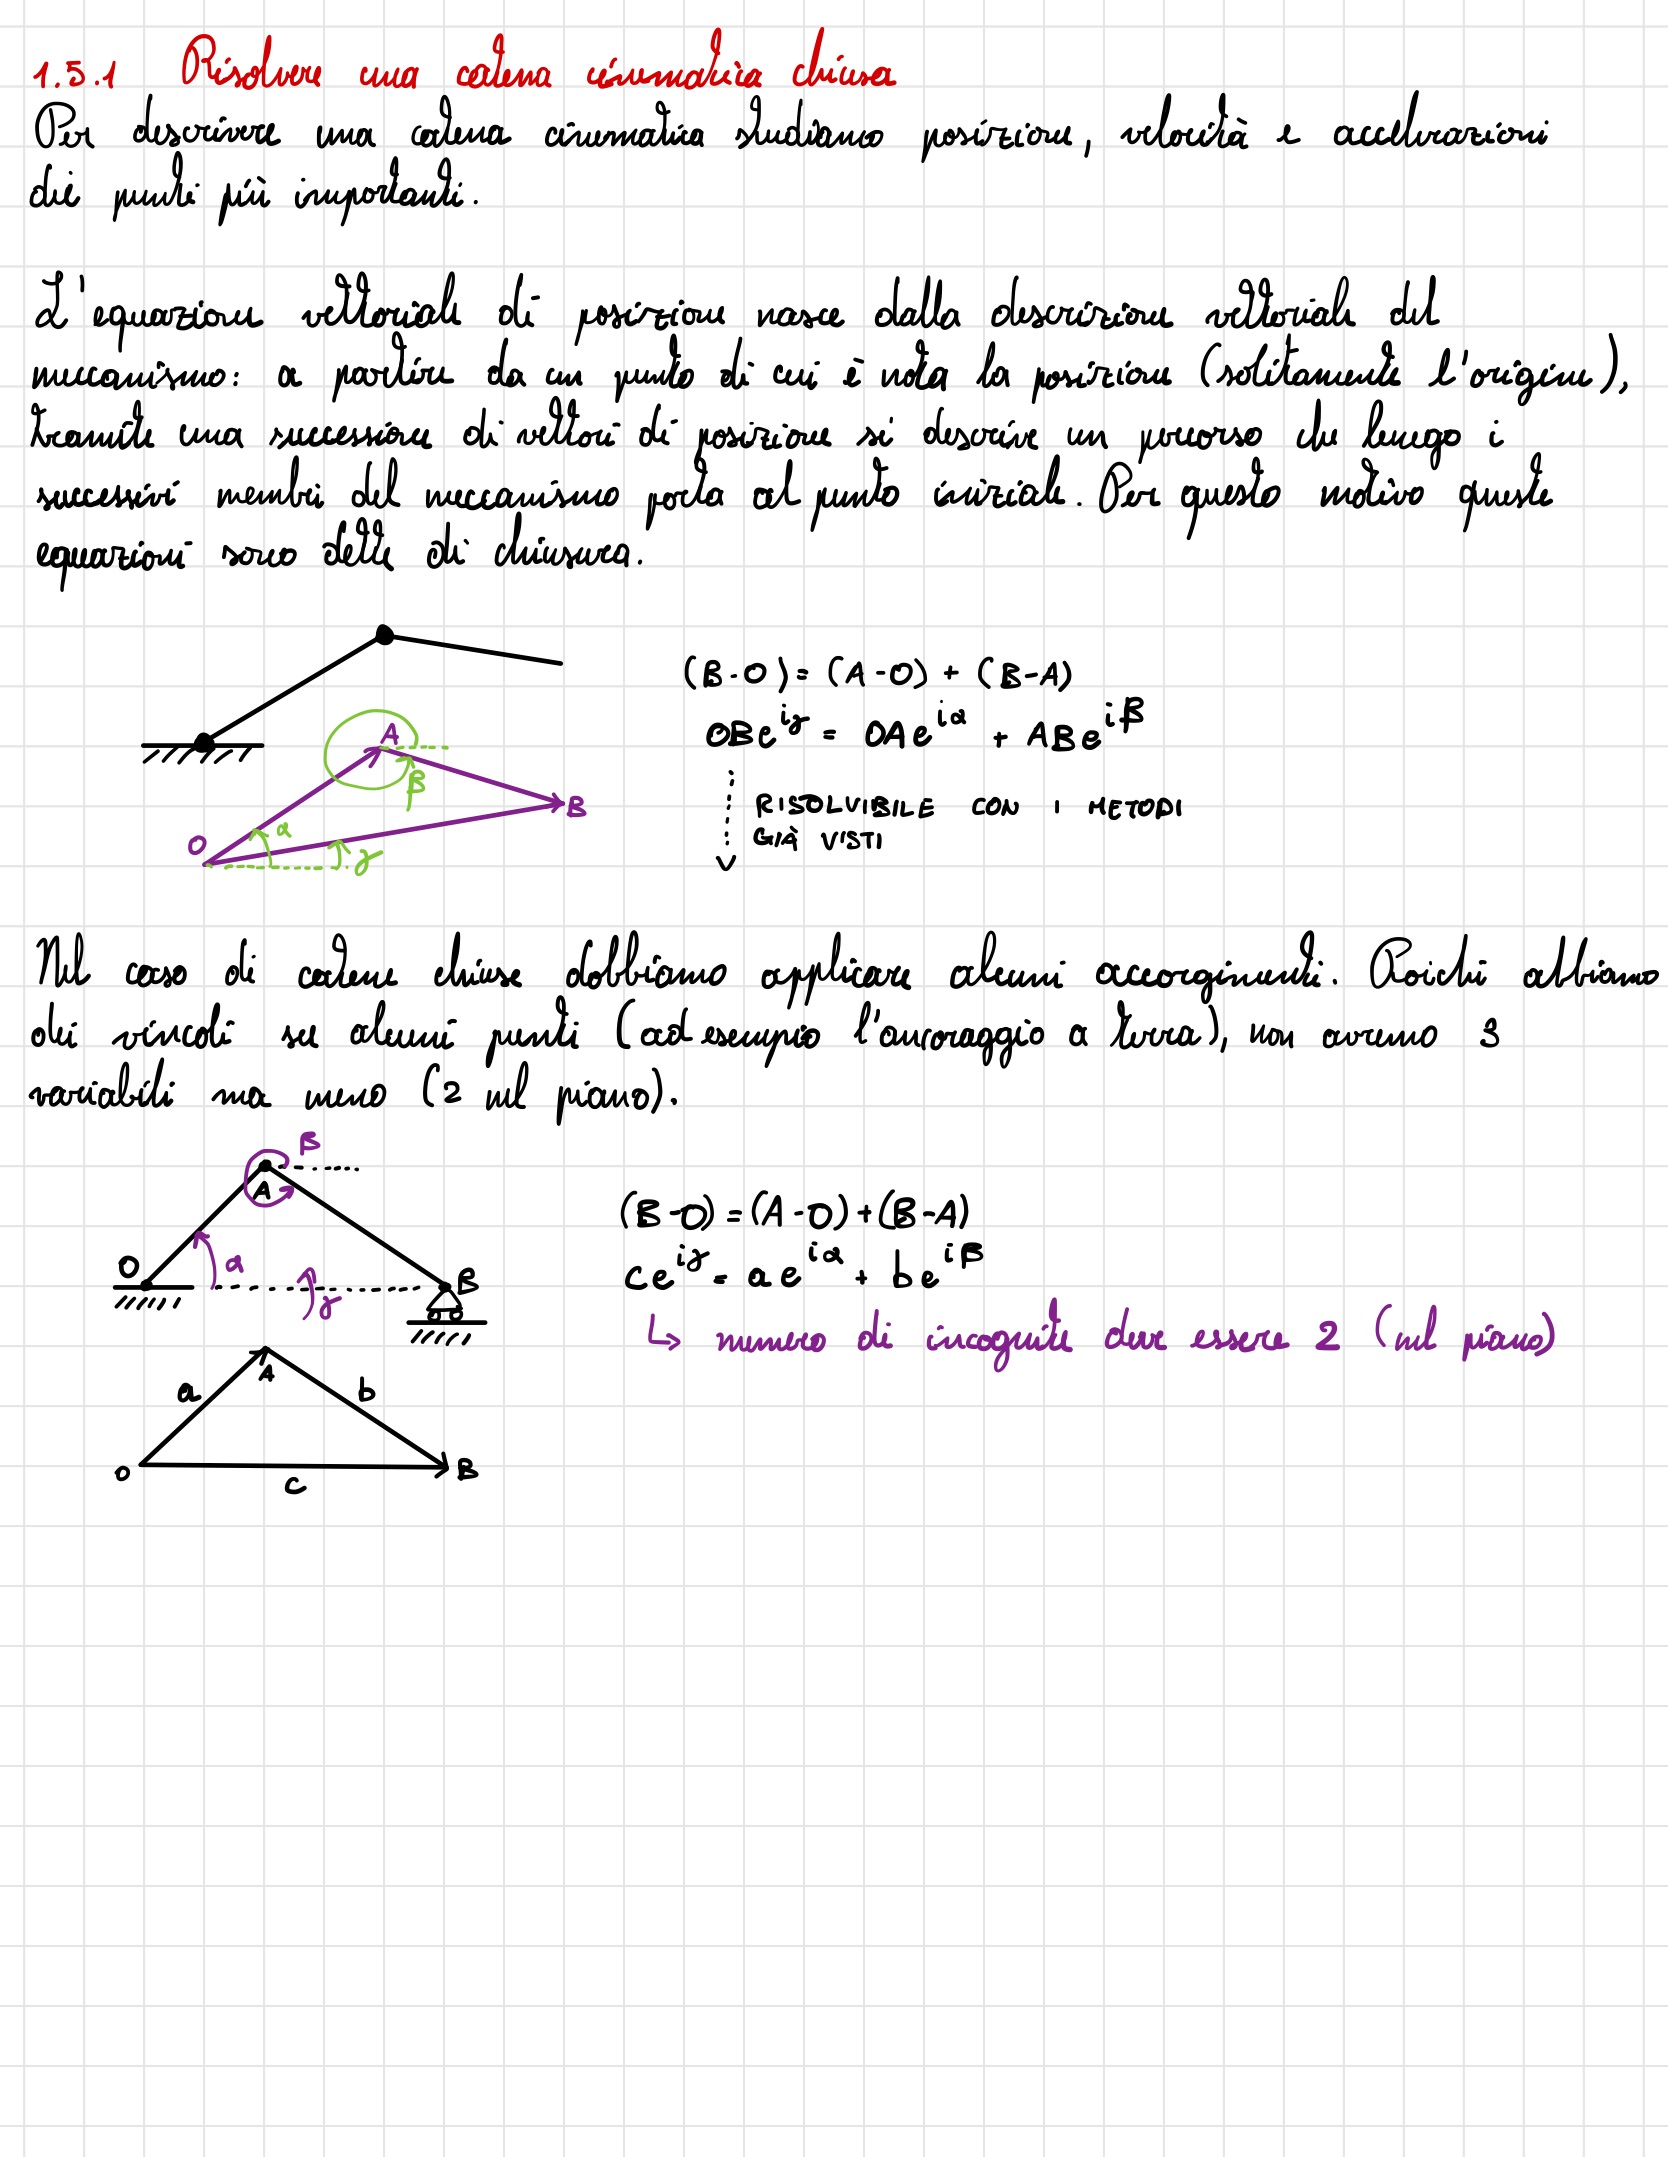 1.5.1 Risolvere una catena cinematica chiusa
Per descrivere una catena cinematica studiamo posizione, velocità e accellerazioni
dei punti più importanti.
L'equazione vettoriale di posizione nasce dalla descrizione vettoriale del
meccanismo: a partire da un punto di cui è nota la posizione (solitamente l'origine),
tramite una successione di vettori di posizione si descrive un percorso che lungo i
successivi membri del meccanismo porta al punto iniziale. Per questo motivo queste
equazioni sono dette di chiusura.
(B-O) = (A-O) + (B-A)
OBe^iγ = OAe^iα + ABe^iβ
A
β
B
O
α
γ
RISOLVIBILE CON I METODI
GIÀ VISTI
Nel caso di catene chiuse dobbiamo applicare alcuni accorgimenti. Poiché abbiamo
dei vincoli su alcuni punti (ad esempio l'ancoraggio a terra), non avremo 3
variabili ma meno (2 nel piano).
β
A
O
α
B
γ
(B-O) = (A-O) + (B-A)
ce^iγ = ae^iα + be^iβ
↳ numero di incognite deve essere 2 (nel piano)
A
a
b
O
B
c